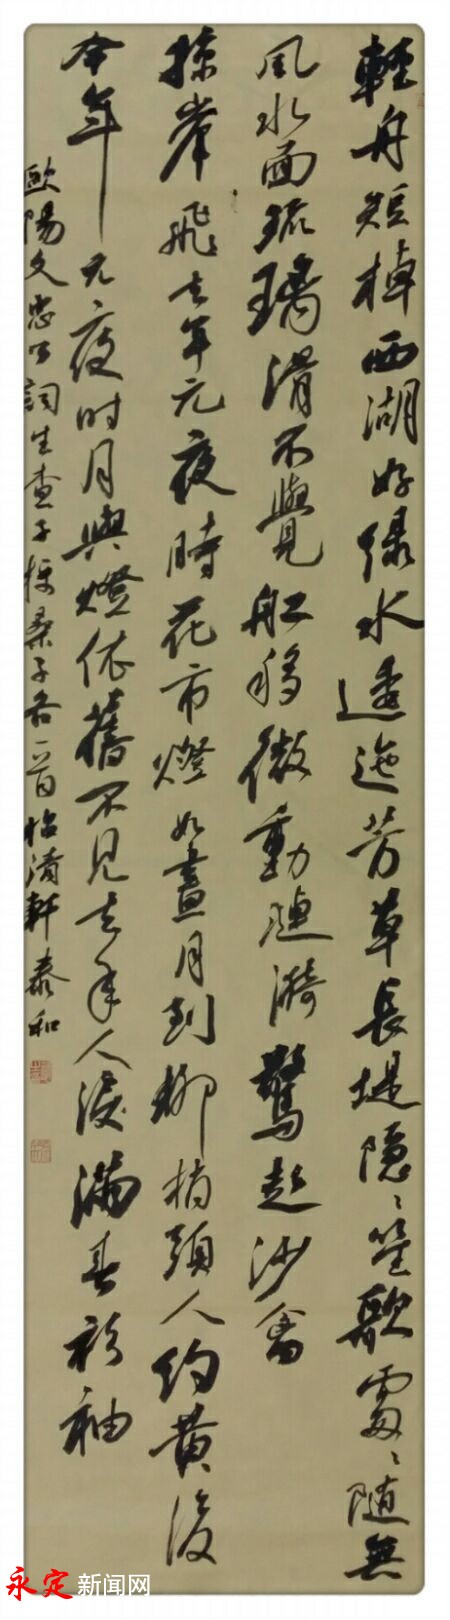 輕舟短棹西湖好绿水逶迤芳草長堤隐〻笙歌處〻随無
風水面琉璃滑不覺舡移微動漣漪驚起沙禽
掠岸飛去年元夜時花市燈如晝月到柳梢頭人约黄後
今年元夜时月與燈依舊不見去年人淚滿春衫袖
歐陽文忠公詞生查子採桑子各一首怡清軒泰和
永定新闻网